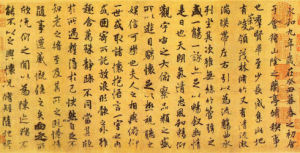 永和九年歲在癸丑暮春之初會
于會稽山陰之蘭亭脩稧事
也羣賢畢至少長咸集此地
有崇山峻領茂林脩竹又有清流激
湍映帶左右引以為流觴曲水
列坐其次雖無絲竹管弦之
盛一觴一詠亦足以暢敘幽情
是日也天朗氣清惠風和暢仰
觀宇宙之大俯察品類之盛
所以遊目騁懷足以極視聽之
娛信可樂也夫人之相與俯仰
一世或取諸懷抱悟言一室之內
或因寄所託放浪形骸之外雖
趣舍萬殊靜躁不同當其欣
於所遇蹔得於己怏然自足不
知老之將至及其所之既惓情
隨事遷感慨係之矣向之所
欣俛仰之間以為陳迹猶不
能不以之興懷況脩短隨化終